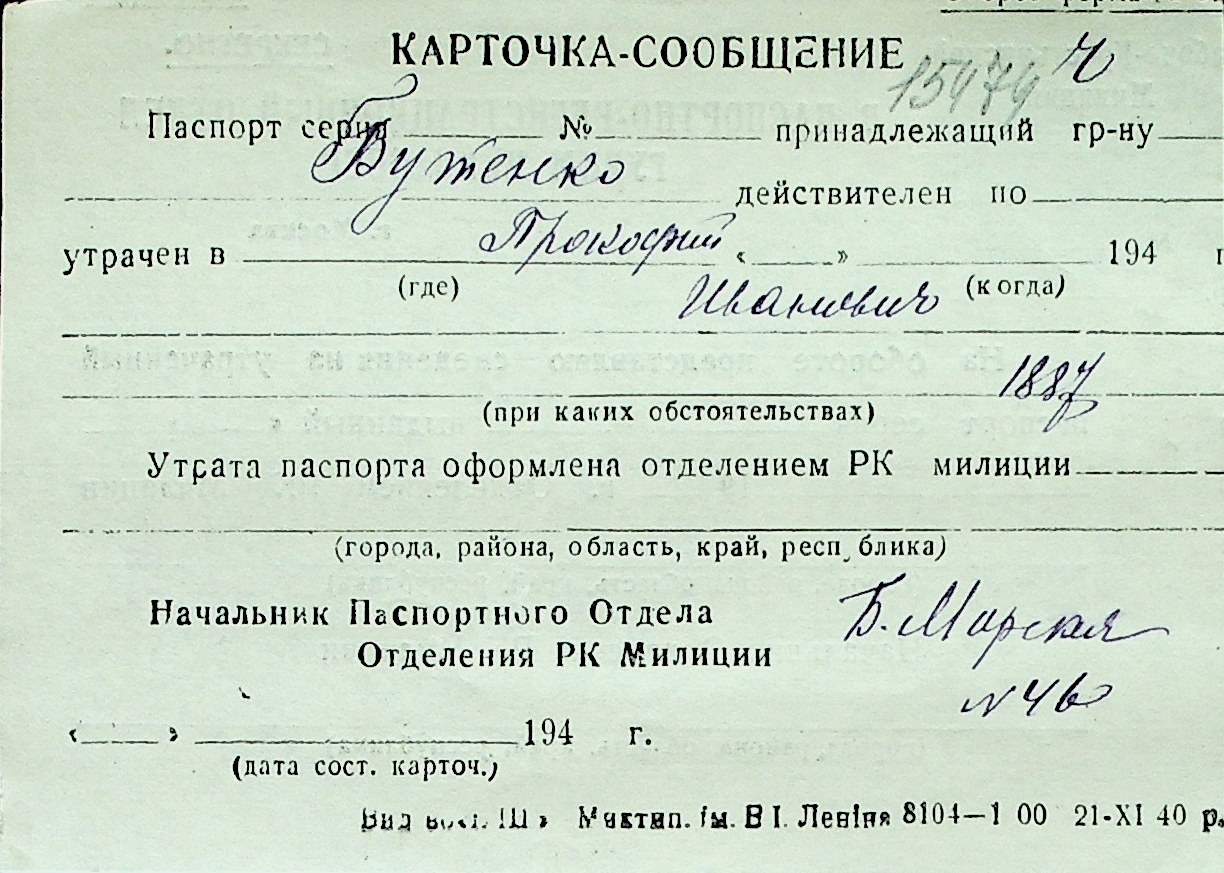 КАРТОЧКА-СООБЩЕНИЕ
15979 Ч
Паспорт серия № принадлежащий гр-ну
Бутенко
действителен по
утрачен в Прокофий « » 194 г
(где) Иванович (когда)
1887
(при каких обстоятельствах)
Утрата паспорта оформлена отделением РК милиции
(города, района, область, край, республика)
Начальник Паспортного Отдела
Б. Морская
Отделения РК Милиции
№ 46
« » 194 г.
(дата сост. карточ.)
Миктип. ім. В І. Леніна 8104—1 00 21-XI 40 р.